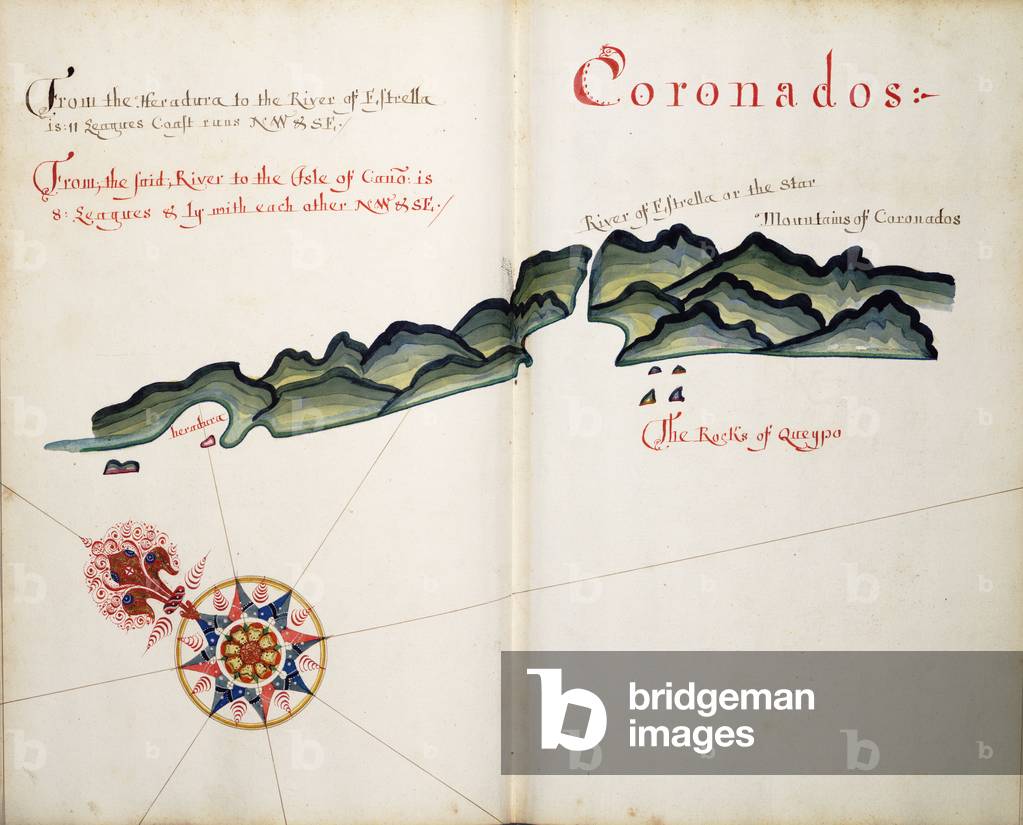 From the Heradura to the River of Estrella
is: 11 Leagues Coast runs NW & SE:/
From, the said, River to the Isle of Cano: is
8: Leagues & ly with each other NW & SE:/
Coronados:~
River of Estrella or the Star
Mountains of Coronados
heradura
The Rocks of Queypo
b bridgeman
images